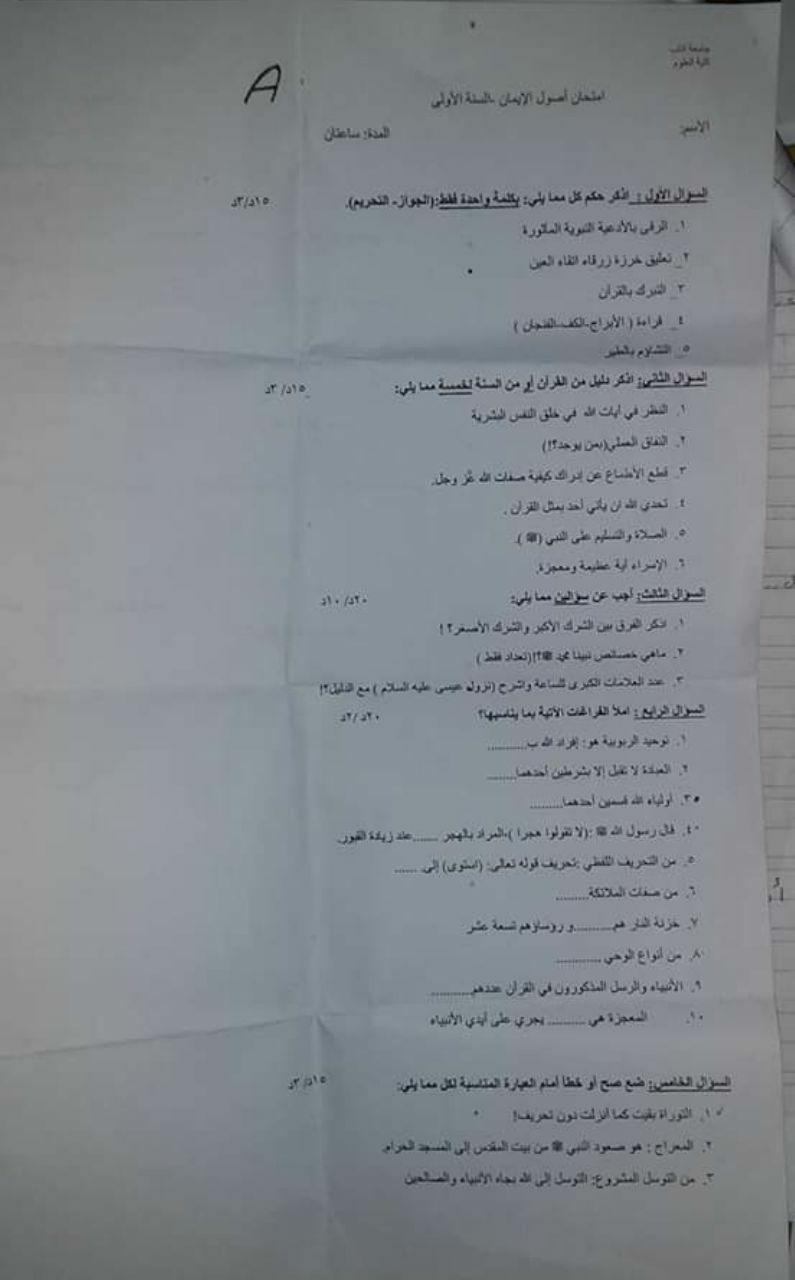 جامعة ادلب
كلية العلوم
A
امتحان أصول الإيمان -السنة الأولى
الاسم: المدة: ساعتان
السؤال الأول : اذكر حكم كل مما يلي: بكلمة واحدة فقط:(الجواز- التحريم). ١٥د/٣د
١. الرقى بالأدعية النبوية المأثورة
٢_ تعليق خرزة زرقاء اتقاء العين
٣_ التبرك بالقرآن
٤_ قراءة ( الأبراج-الكف-الفنجان )
٥_ التشاؤم بالطير
السؤال الثاني: اذكر دليل من القرآن أو من السنة لخمسة مما يلي: ١٥د/ ٣د
١. النظر في آيات الله في خلق النفس البشرية
٢. النفاق العملي(بمن يوجد؟!)
٣. قطع الأطماع عن إدراك كيفية صفات الله عز وجل.
٤. تحدي الله ان يأتي أحد بمثل القرآن .
٥. الصلاة والتسليم على النبي (ﷺ ).
٦. الإسراء آية عظيمة ومعجزة.
السؤال الثالث: أجب عن سؤالين مما يلي: ٢٠د/ ١٠د
١. اذكر الفرق بين الشرك الأكبر والشرك الأصغر؟ !
٢. ماهي خصائص نبينا محمد ﷺ؟!(تعداد فقط )
٣. عدد العلامات الكبرى للساعة واشرح (نزول عيسى عليه السلام ) مع الدليل؟!
السؤال الرابع : املأ الفراغات الآتية بما يناسبها؟ ٢٠د /٢د
١. توحيد الربوبية هو: إفراد الله ب...........
٢. العبادة لا تقبل إلا بشرطين أحدهما........
٣. أولياء الله قسمين أحدهما.........
٤. قال رسول الله ﷺ :(لا تقولوا هجرا )،المراد بالهجر .......عند زيادة القبور.
٥. من التحريف اللفظي :تحريف قوله تعالى: (استوى) إلى. ......
٦. من صفات الملائكة.........
٧. خزنة النار هم...........و رؤساؤهم تسعة عشر
٨. من أنواع الوحي ............
٩. الأنبياء والرسل المذكورون في القرآن عددهم...........
١٠. المعجزة هي .......... يجري على أيدي الأنبياء
السؤال الخامس: ضع صح أو خطأ أمام العبارة المناسبة لكل مما يلي: ١٥د/٣د
١. التوراة بقيت كما أنزلت دون تحريف!
٢. المعراج : هو صعود النبي ﷺ من بيت المقدس إلى المسجد الحرام.
٣. من التوسل المشروع: التوسل إلى الله بجاه الأنبياء والصالحين